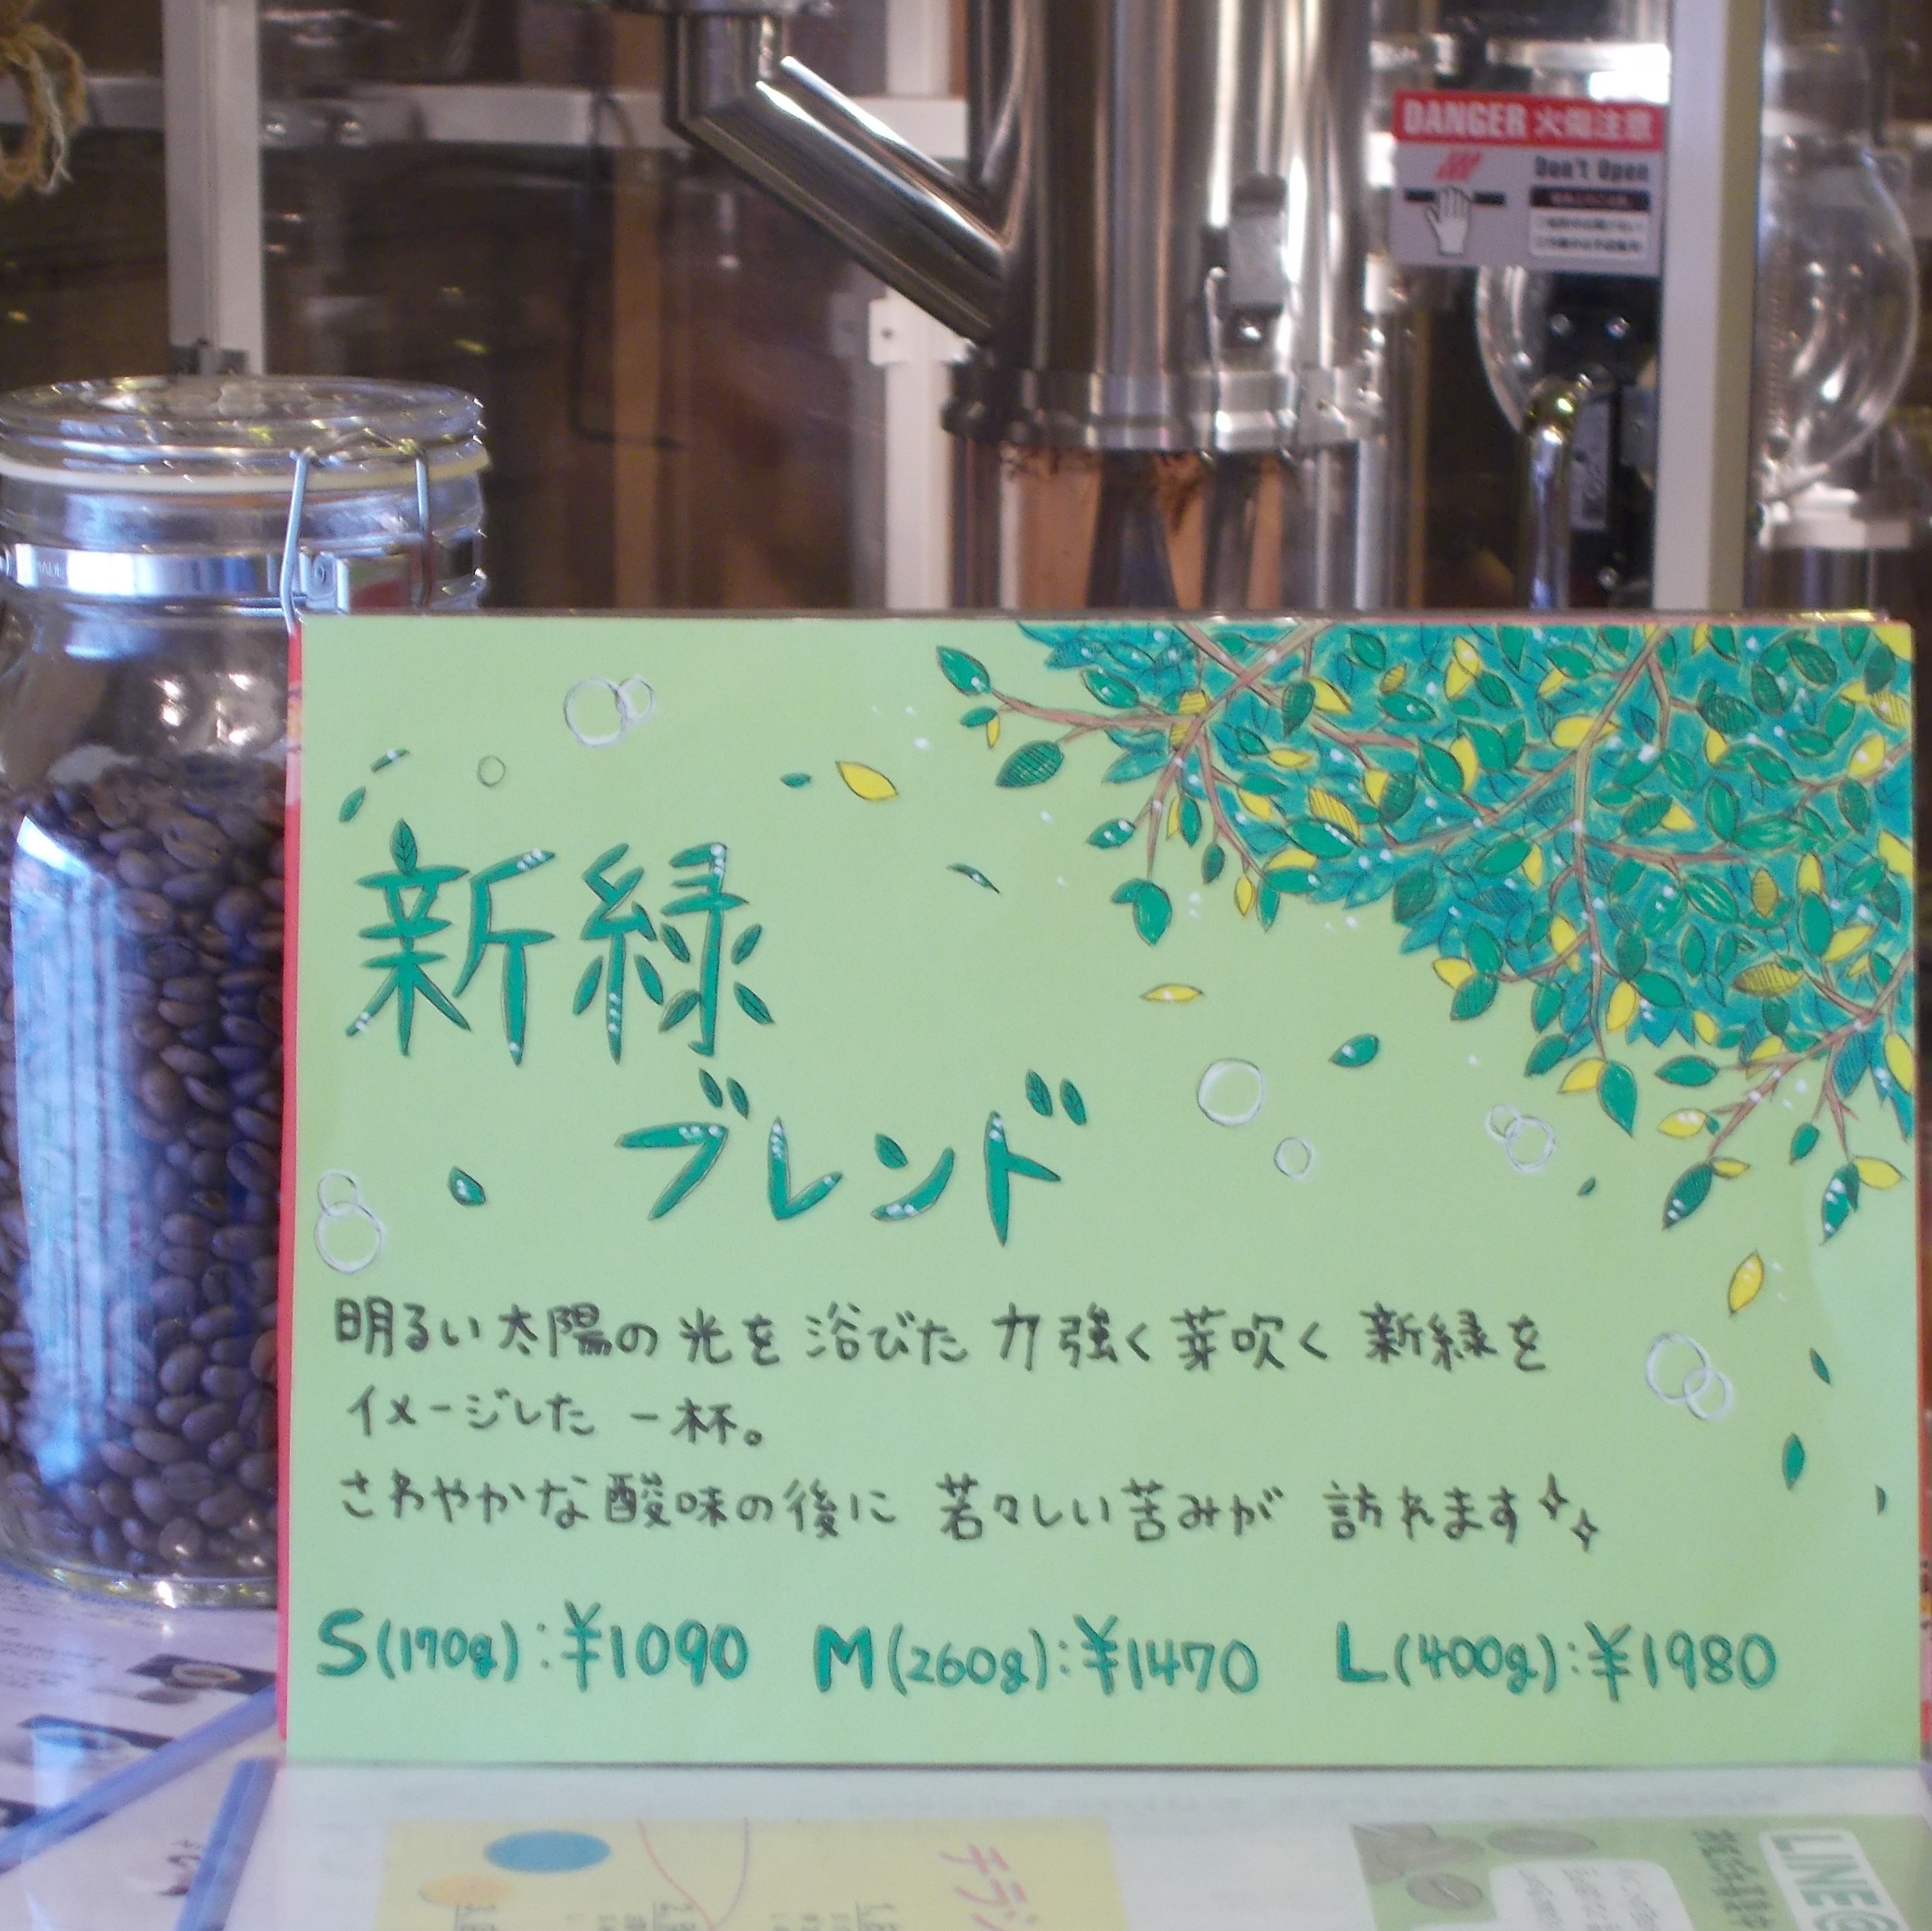 DANGER 火傷注意
Don't Open
新緑
ブレンド
明るい太陽の光を浴びた力強く芽吹く新緑を
イメージした一杯。
さわやかな酸味の後に若々しい苦みが訪れます
S(170g):¥1090 M(260g):¥1470 L(400g):¥1980
チラシ
LINE